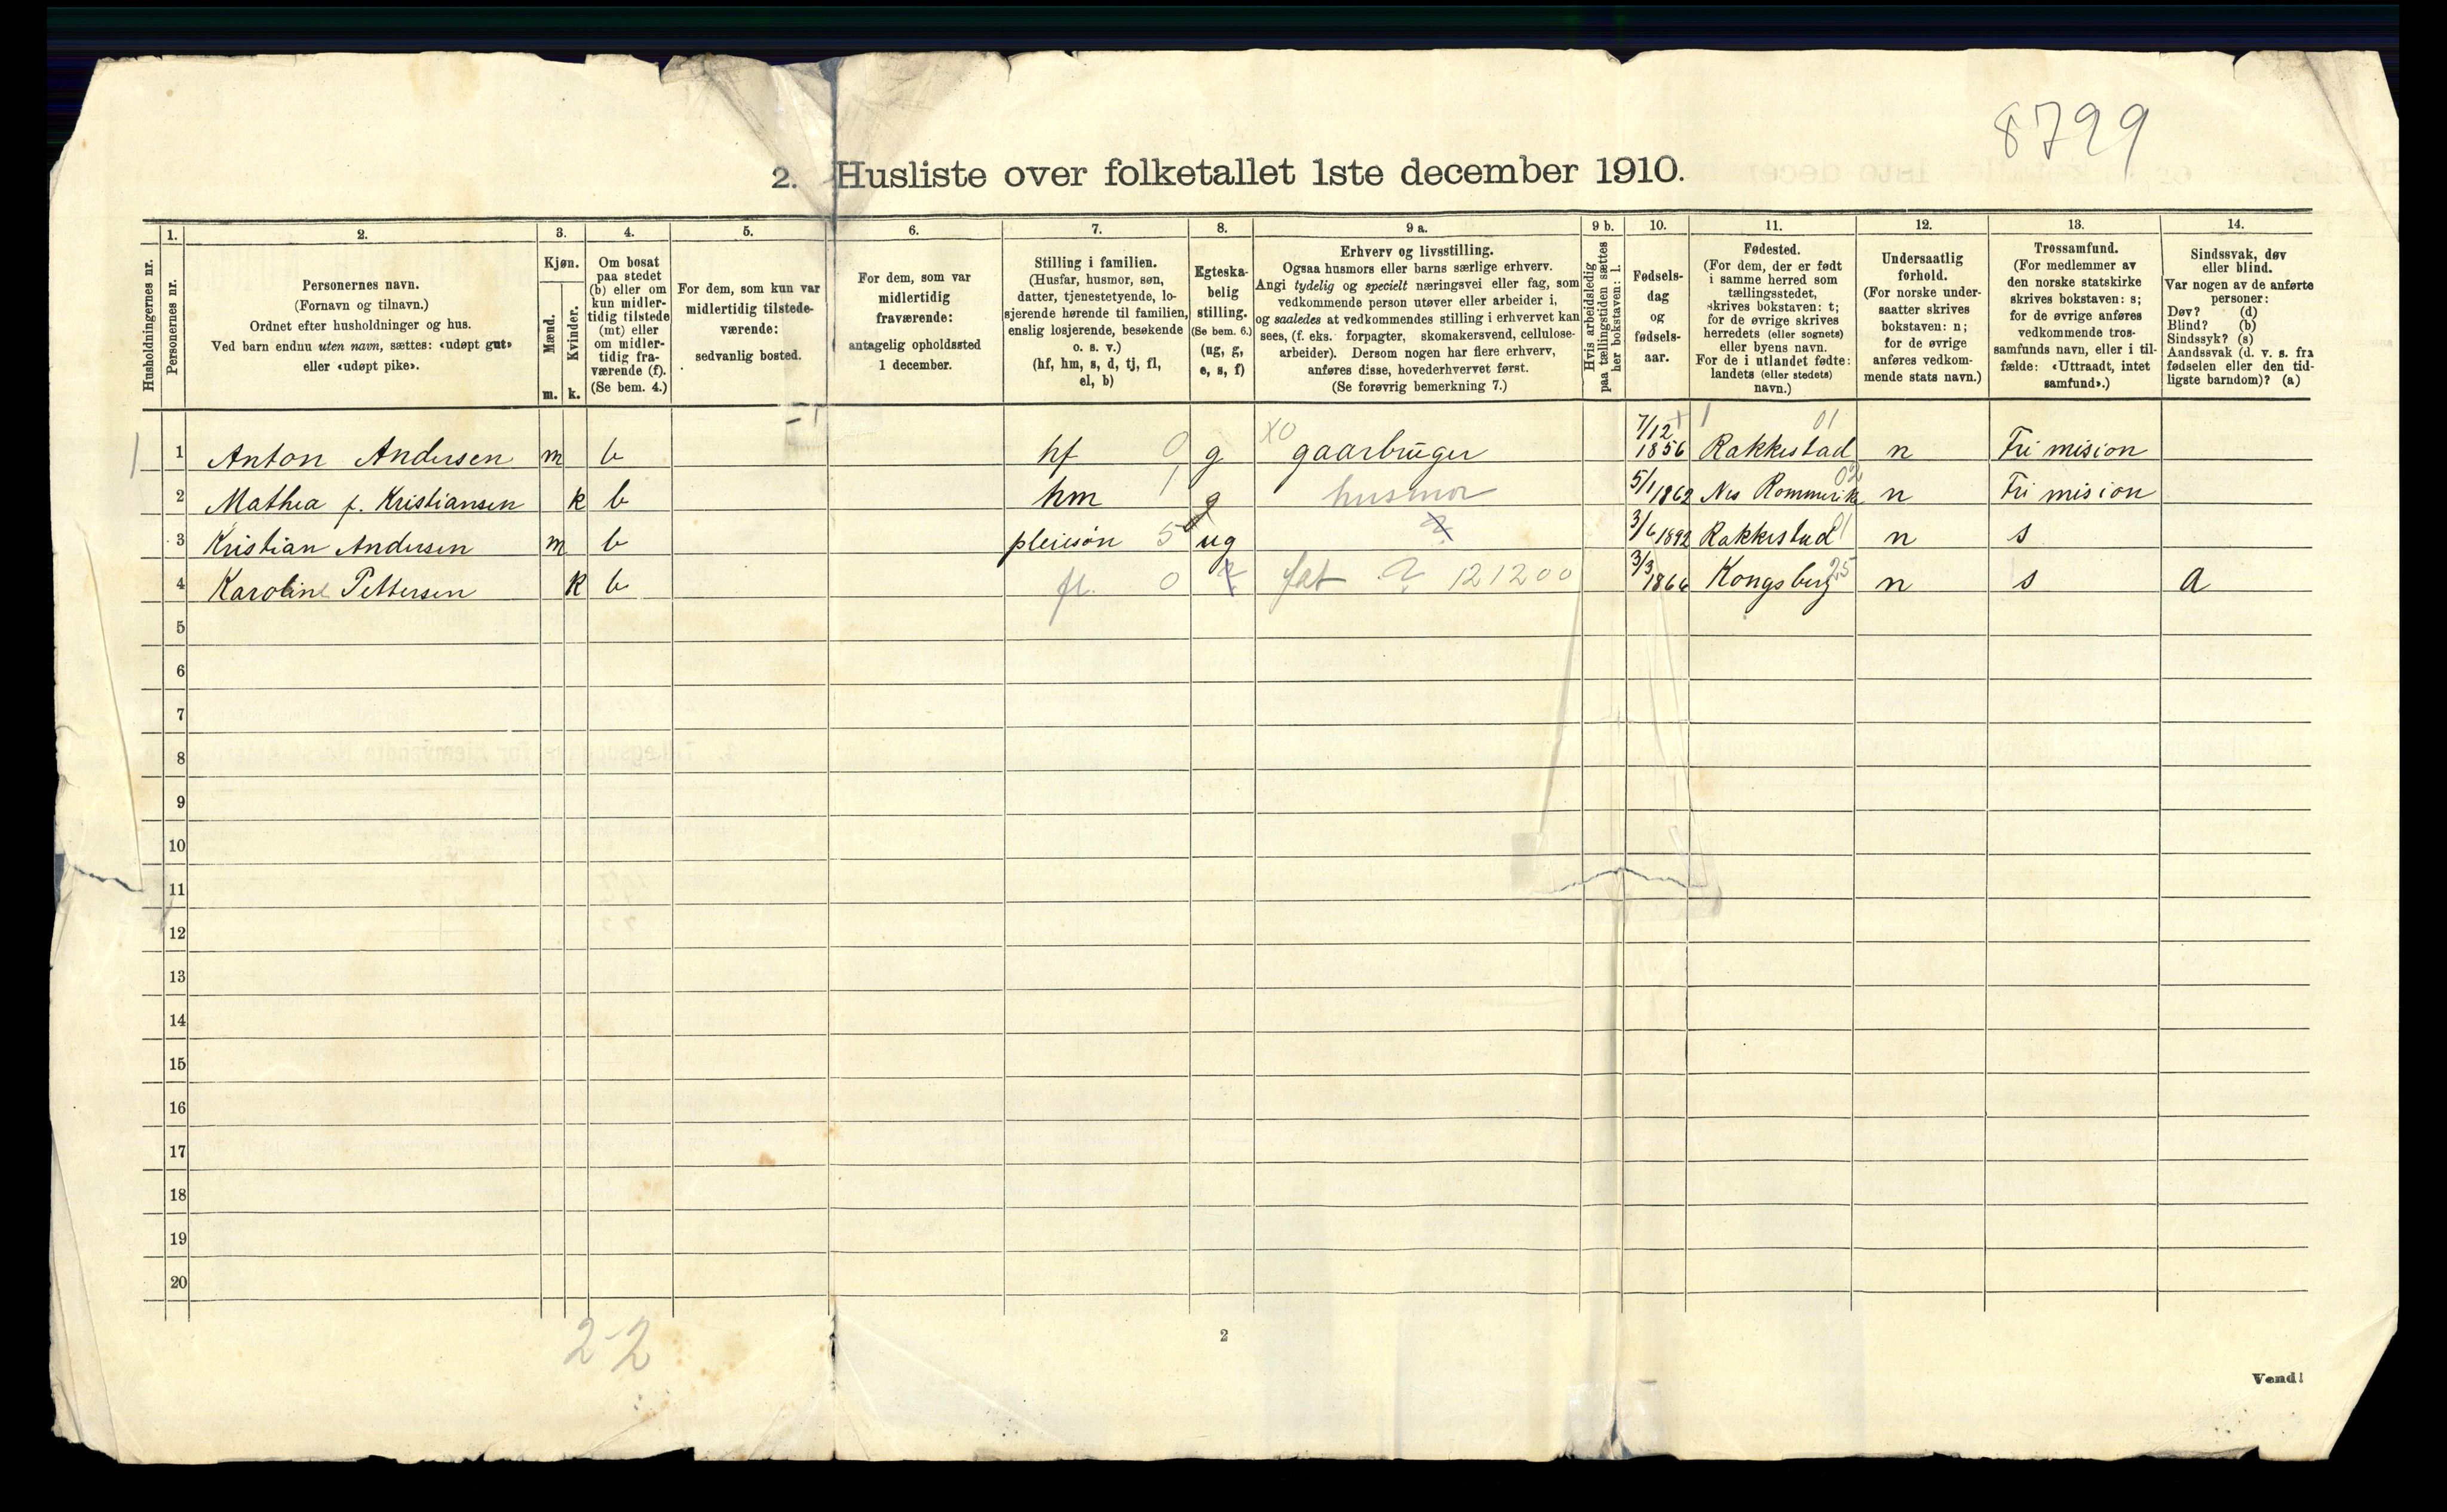 8799
2. Husliste over folketallet 1ste december 1910.
Husholdningernes nr.
1.
Personernes nr.
2.
Personernes navn.
(Fornavn og tilnavn.)
Ordnet efter husholdninger og hus.
Ved barn endnu uten navn, sættes: «udøpt gut»
eller «udøpt pike».
3.
Kjøn.
Mænd.
Kvinder.
m. k.
4.
Om bosat
paa stedet
(b) eller om
kun midler-
tidig tilstede
(mt) eller
om midler-
tidig fra-
værende (f).
(Se bem. 4.)
5.
For dem, som kun var
midlertidig tilstede-
værende:
sedvanlig bosted.
6.
For dem, som var
midlertidig
fraværende:
antagelig opholdssted
1 december.
7.
Stilling i familien.
(Husfar, husmor, søn,
datter, tjenestetyende, lo-
sjerende hørende til familien,
enslig losjerende, besøkende
o. s. v.)
(hf, hm, s, d, tj, fl,
el, b)
8.
Egteska-
belig
stilling.
(Se bem. 6.)
(ug, g,
e, s, f)
9 a.
Erhverv og livsstilling.
Ogsaa husmors eller barns særlige erhverv.
Angi tydelig og specielt næringsvei eller fag, som
vedkommende person utøver eller arbeider i,
og saaledes at vedkommendes stilling i erhvervet kan
sees, (f. eks. forpagter, skomakersvend, cellulose-
arbeider). Dersom nogen har flere erhverv,
anføres disse, hovederhvervet først.
(Se forøvrig bemerkning 7.)
9 b.
Hvis arbeidsledig
paa tællingstiden sættes
her bokstaven: l.
10.
Fødsels-
dag
og
fødsels-
aar.
11.
Fødested.
(For dem, der er født
i samme herred som
tællingsstedet,
skrives bokstaven: t;
for de øvrige skrives
herredets (eller sognets)
eller byens navn.
For de i utlandet fødte:
landets (eller stedets)
navn.)
12.
Undersaatlig
forhold.
(For norske under-
saatter skrives
bokstaven: n;
for de øvrige
anføres vedkom-
mende stats navn.)
13.
Trossamfund.
(For medlemmer av
den norske statskirke
skrives bokstaven: s;
for de øvrige anføres
vedkommende tros-
samfunds navn, eller i til-
fælde: «Uttraadt, intet
samfund».)
14.
Sindssvak, døv
eller blind.
Var nogen av de anførte
personer:
Døv? (d)
Blind? (b)
Sindssyk? (s)
Aandssvak (d. v. s. fra
fødselen eller den tid-
ligste barndom)? (a)
1 Anton Andersen m b hf 0 g X0 gaarbruger 7/12 1856 01 Rakkestad n Fri mision
2 Mathea f. Kristiansen k b hm 1 g husmor 5/1 1862 Nes Rommerike 02 n Fri mision
3 Kristian Andersen m b pleiesøn 5 ug 3/6 1892 Rakkestad 01 n s
4 Karoline Pettersen k b fl. 0 ? fat ? 121200 3/3 1866 Kongsberg 25 n s a
5
6
7
8
9
10
11
12
13
14
15
16
17
18
19
20
2-2
2
Vend!